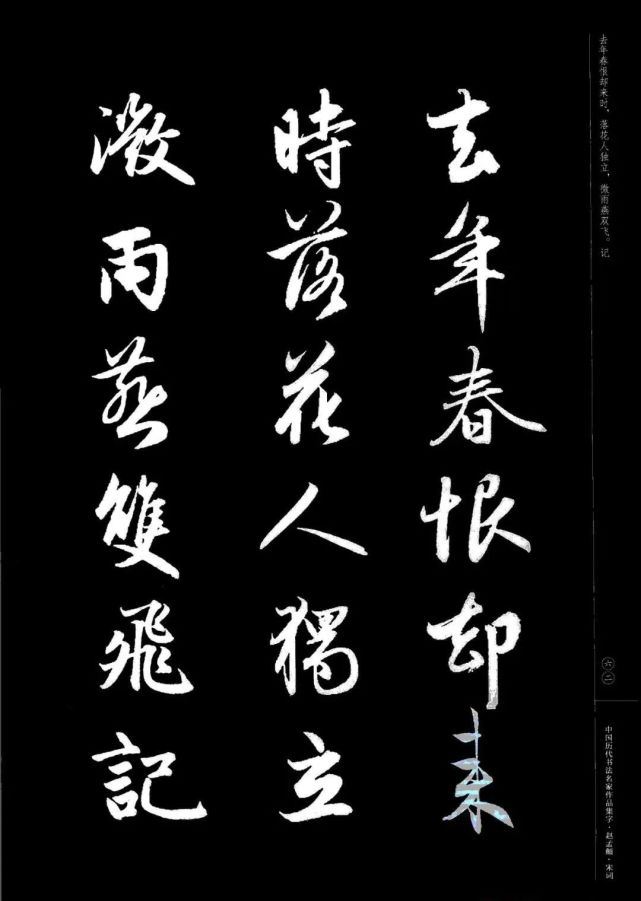 去年春恨却来
時落花人獨立
微雨燕雙飛記
去年春恨却来时，落花人独立，微雨燕双飞。记
六二
中国历代书法名家作品集字·赵孟頫·宋词